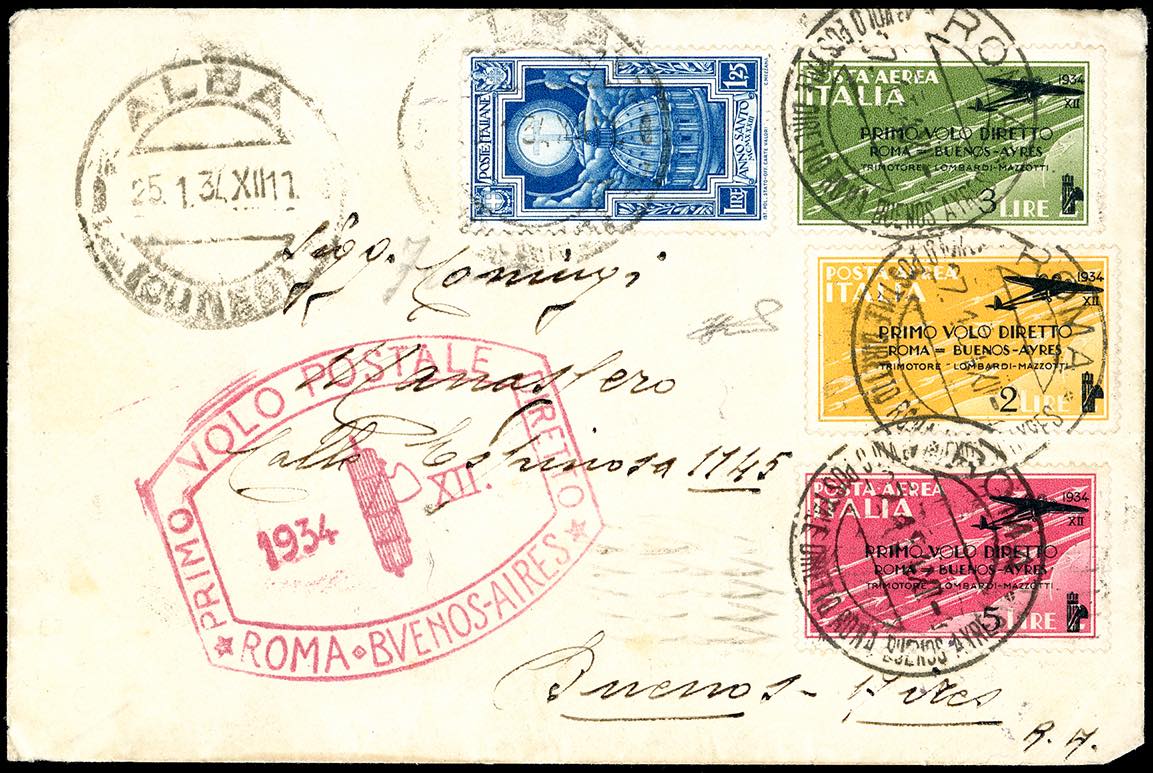 ALBA
25.1.34.XII 11
(CUNEO)
POSTE ITALIANE
1,25
LIRE
ANNO SANTO
MCMXXXIII
POSTA AEREA
ITALIA
1934
XII
PRIMO VOLO DIRETTO
ROMA = BUENOS-AYRES
TRIMOTORE "LOMBARDI-MAZZOTTI"
3 LIRE
ROMA
POSTA AEREA
ITALIA
1934
XII
PRIMO VOLO DIRETTO
ROMA = BUENOS-AYRES
TRIMOTORE "LOMBARDI-MAZZOTTI"
2 LIRE
ROMA
POSTA AEREA
ITALIA
1934
XII
PRIMO VOLO DIRETTO
ROMA = BUENOS-AYRES
TRIMOTORE "LOMBARDI-MAZZOTTI"
5 LIRE
ROMA
7
Sigr.
Manassero
Calle Espinosa 1145
Buenos-Aires
R. A.
PRIMO VOLO POSTALE DIRETTO
1934 XII.
ROMA BVENOS-AIRES